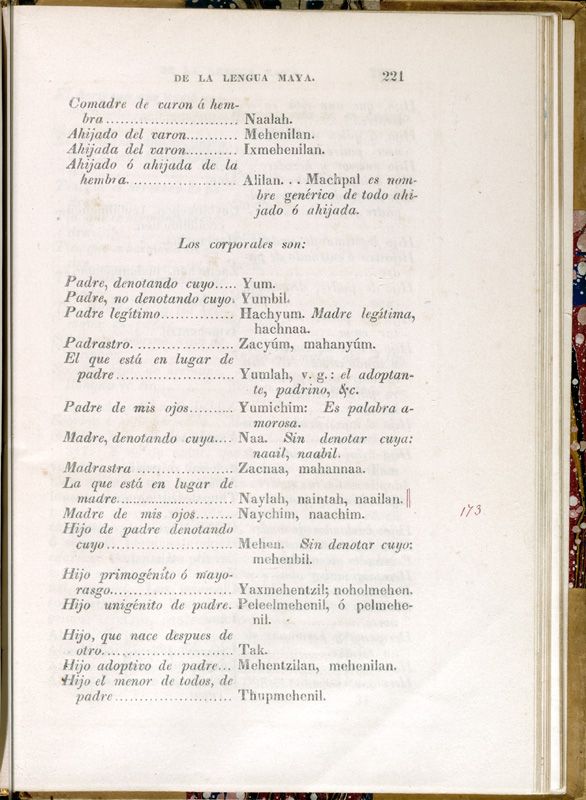 DE LA LENGUA MAYA. 221
Comadre de varon á hem-
bra........................ Naalah.
Ahijado del varon........... Mehenilan.
Ahijada del varon........... Ixmehenilan.
Ahijado ó ahijada de la
hembra. .................... Alilan. . . Machpal es nom-
bre genérico de todo ahi-
jado ó ahijada.
Los corporales son:
Padre, denotando cuyo..... Yum.
Padre, no denotando cuyo. Yumbil.
Padre legítimo.............. Hachyum. Madre legítima,
hachnaa.
Padrastro. .................. Zacyúm, mahanyúm.
El que está en lugar de
padre...................... Yumlah, v. g.: el adoptan-
te, padrino, &c.
Padre de mis ojos.......... Yumichim: Es palabra a-
morosa.
Madre, denotando cuya.... Naa. Sin denotar cuya:
naail, naabil.
Madrastra .................. Zacnaa, mahannaa.
La que está en lugar de
madre...................... Naylah, naintah, naailan.
Madre de mis ojos......... Naychim, naachim. 173
Hijo de padre denotando
cuyo........................ Mehen. Sin denotar cuyo:
mehenbil.
Hijo primogénito ó mayo-
rasgo....................... Yaxmehentzil; noholmehen.
Hijo unigénito de padre. Peleelmehenil, ó pelmehe-
nil.
Hijo, que nace despues de
otro........................ Tak.
Hijo adoptivo de padre... Mehentzilan, mehenilan.
Hijo el menor de todos, de
padre...................... Thupmehenil.